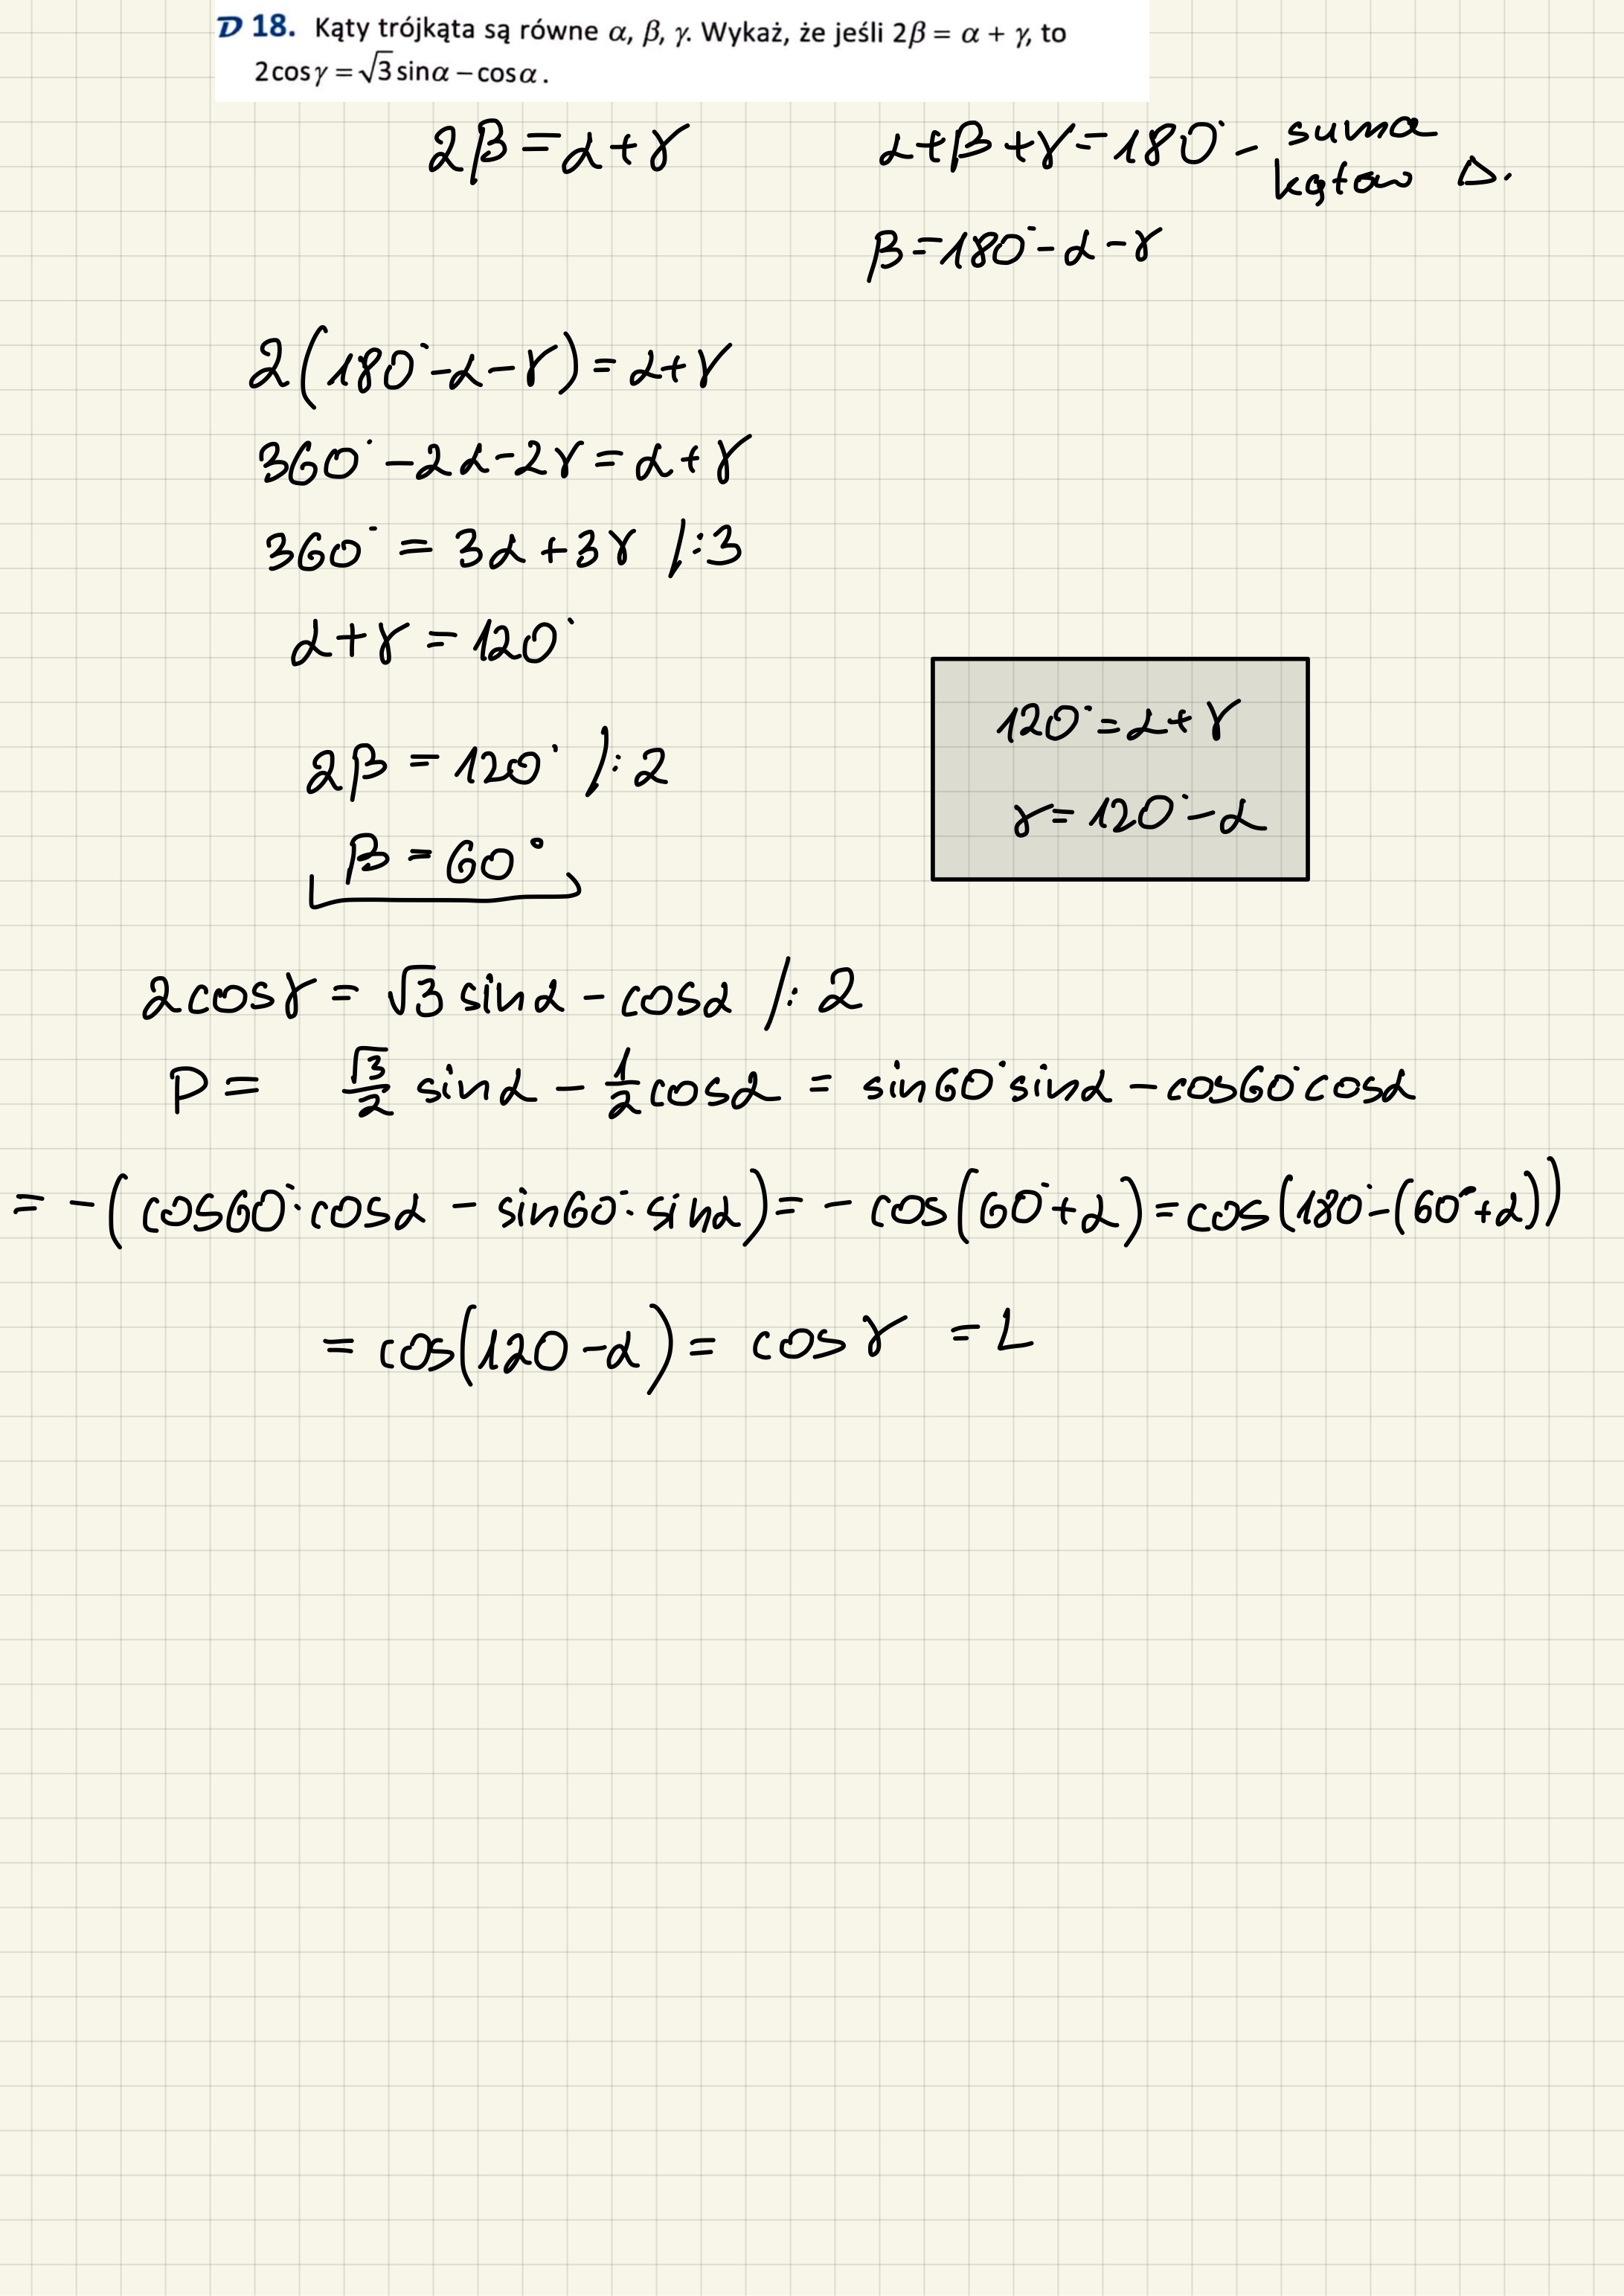 D 18. Kąty trójkąta są równe α, β, γ. Wykaż, że jeśli 2β = α + γ, to
2cosγ = √3 sinα – cosα.
2β = α + γ
α + β + γ = 180° – suma
kątów Δ.
β = 180° - α - γ
2(180° - α - γ) = α + γ
360° - 2α - 2γ = α + γ
360° = 3α + 3γ /:3
α + γ = 120°
2β = 120° /:2
β = 60°
120° = α + γ
γ = 120° - α
2cosγ = √3 sinα - cosα /:2
P = √3/2 sinα - 1/2 cosα = sin60° sinα - cos60° cosα
= -(cos60°·cosα - sin60°·sinα) = - cos(60° + α) = cos(180° - (60° + α))
= cos(120 - α) = cosγ = L